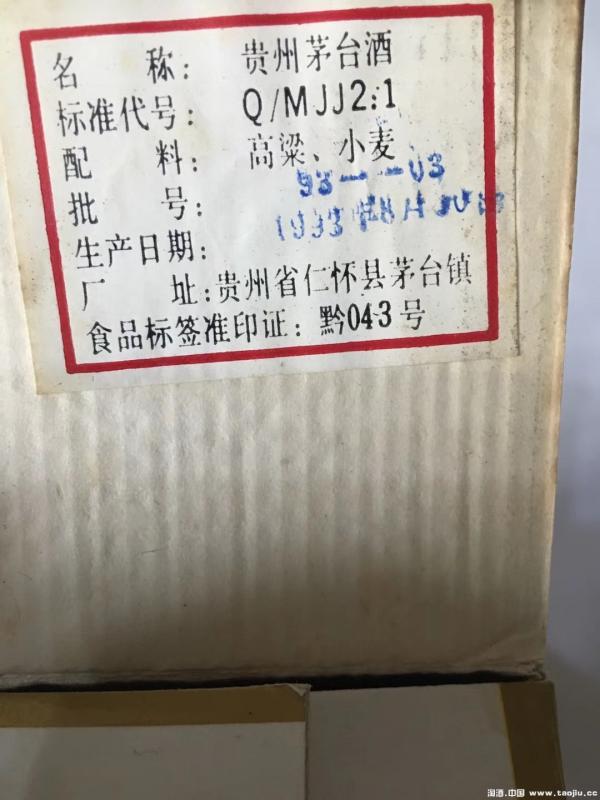 名 称: 贵州茅台酒
标准代号: Q/MJJ2:1
配 料: 高粱、小麦
批 号: 93-- -03
生产日期: 1993年8月
厂 址:贵州省仁怀县茅台镇
食品标签准印证: 黔043号
淘酒.中国 www.taojiu.cc